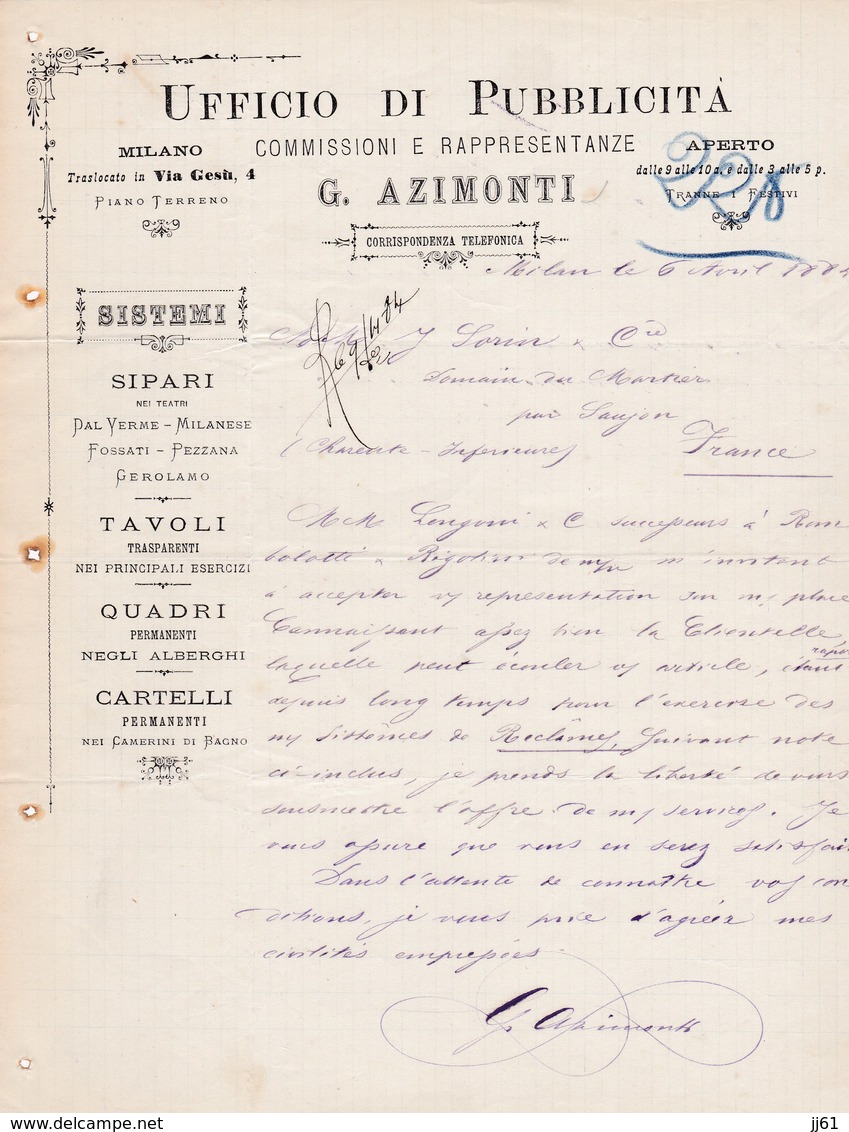 UFFICIO DI PUBBLICITÀ
COMMISSIONI E RAPPRESENTANZE
G. AZIMONTI
CORRISPONDENZA TELEFONICA
MILANO
Traslocato in Via Gesù, 4
PIANO TERRENO
APERTO
dalle 9 alle 10 a. e dalle 3 alle 5 p.
TRANNE I FESTIVI
228
SISTEMI
SIPARI
NEI TEATRI
DAL VERME - MILANESE
FOSSATI - PEZZANA
GEROLAMO
TAVOLI
TRASPARENTI
NEI PRINCIPALI ESERCIZI
QUADRI
PERMANENTI
NEGLI ALBERGHI
CARTELLI
PERMANENTI
NEI CAMERINI DI BAGNO
Milan le 6 Avril 1884
J Sorin & Cie
Domain du Mortier
par Saujon
(Charente-Inferieure)
France
MM Longoni & C successeurs à Bom
balotti & Rigotini de m'invitant
à accepter représentation sur place
Connaissant assez bien la Clientelle
laquelle peut écouler article, étant
rapor
depuis long temps pour l'exercise des
my sistêmes de Reclâmes, suivant note
ci-inclus, je prends la liberté de vous
soumettre l'offre de my services. Je
vous assure que vous en serez satisfait
Dans l'attente de connaître vos con
ditions, je vous prie d'agréer mes
civilités empressées
G. Azimonti
delcampe.net
jj61